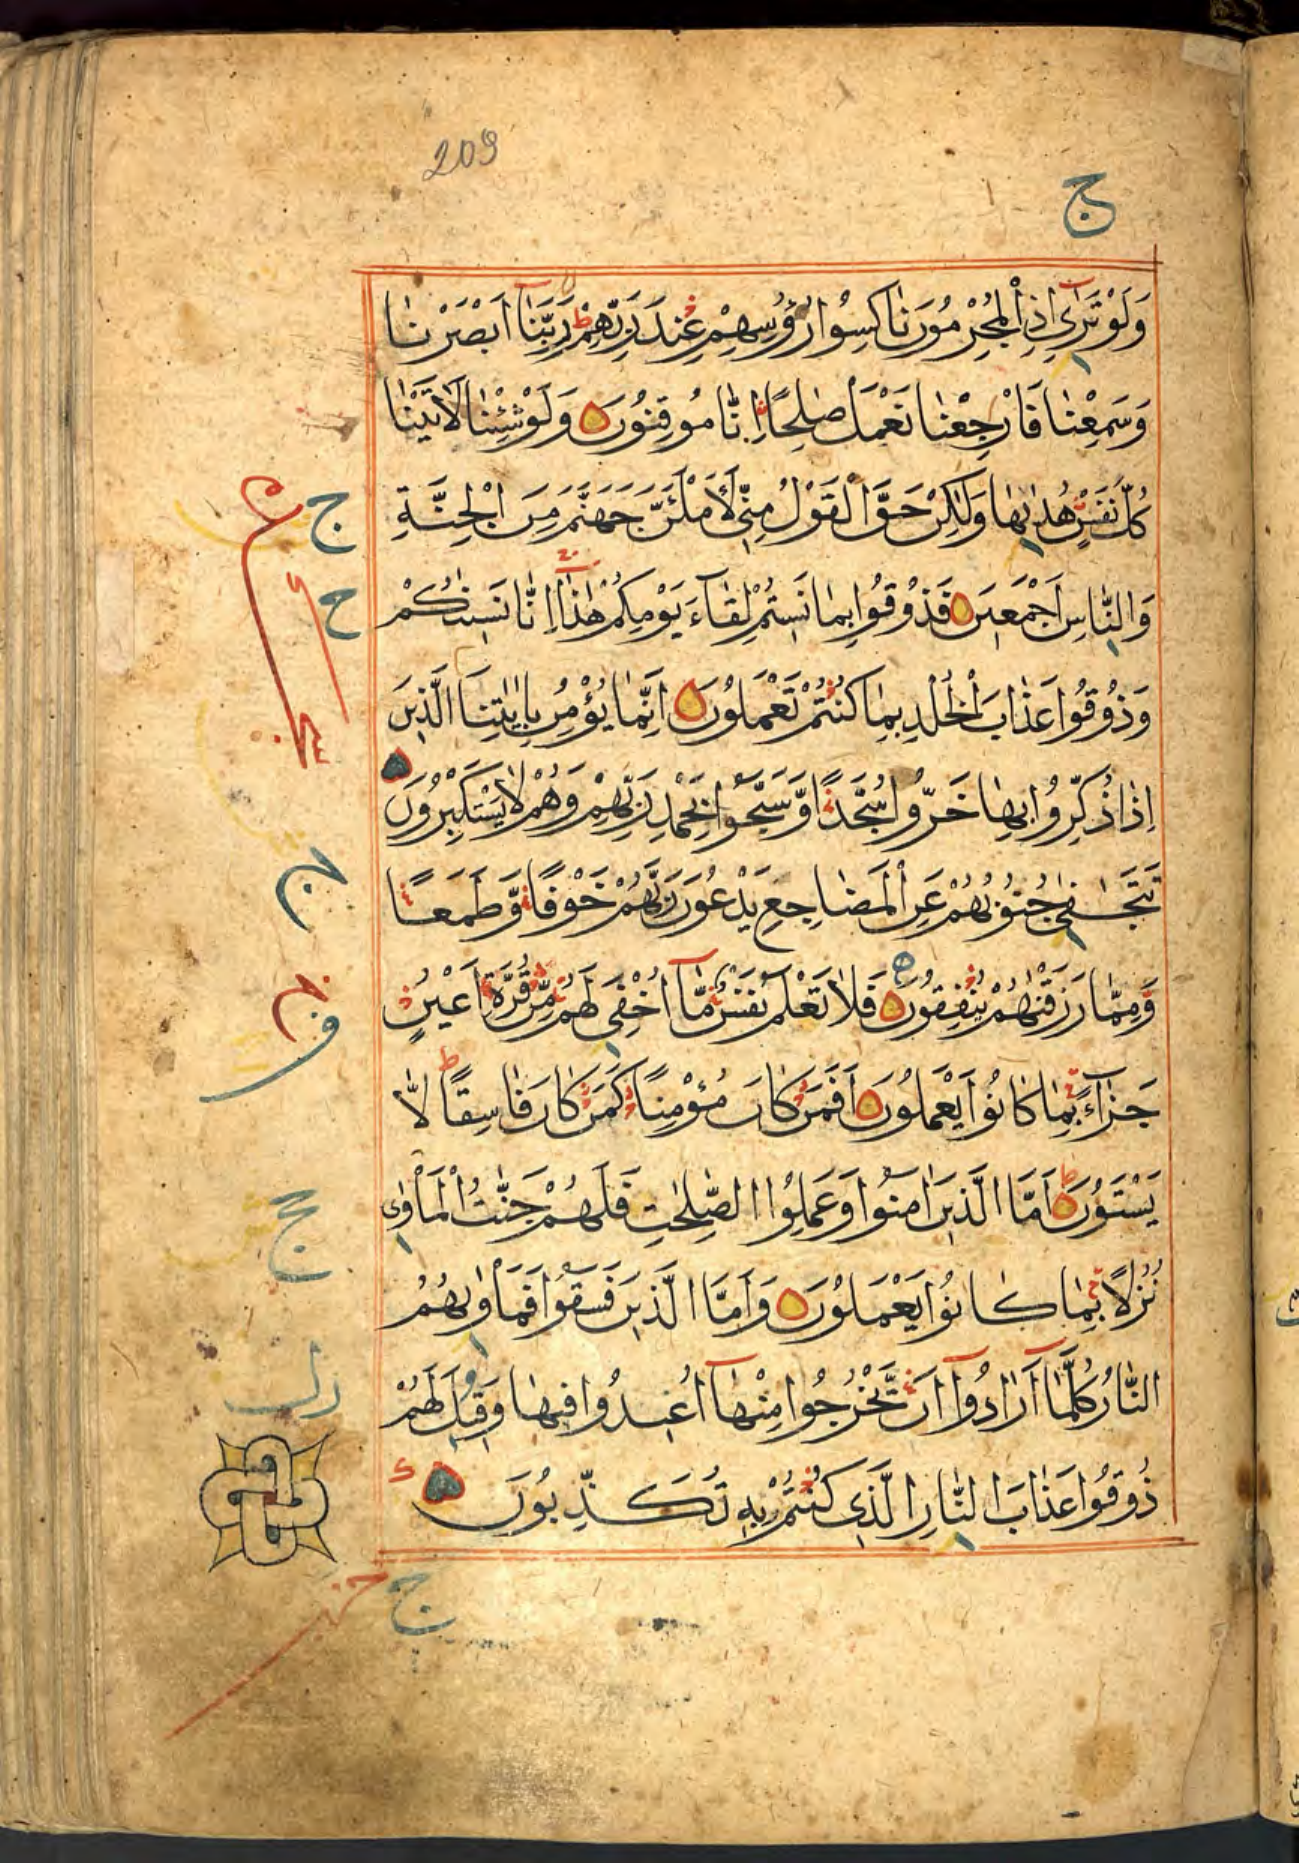 209
ج
وَلَوْ تَرٰىٓ اِذِ الْمُجْرِمُوْنَ نَاكِسُوْا رُءُوْسِهِمْ عِنْدَ رَبِّهِمْ ط رَبَّنَآ اَبْصَرْنَا
وَسَمِعْنَا فَارْجِعْنَا نَعْمَلْ صٰلِحًا اِنَّا مُوْقِنُوْنَ وَلَوْ شِئْنَا لَاٰتَيْنَا
كُلَّ نَفْسٍ هُدٰىهَا وَلٰكِنْ حَقَّ الْقَوْلُ مِنِّيْ لَاَمْلَئَنَّ جَهَنَّمَ مِنَ الْجِنَّةِ
وَالنَّاسِ اَجْمَعِيْنَ فَذُوْقُوْا بِمَا نَسِيْتُمْ لِقَآءَ يَوْمِكُمْ هٰذَا اِنَّا نَسِيْنٰكُمْ
وَذُوْقُوْا عَذَابَ الْخُلْدِ بِمَا كُنْتُمْ تَعْمَلُوْنَ اِنَّمَا يُؤْمِنُ بِاٰيٰتِنَا الَّذِيْنَ
اِذَا ذُكِّرُوْا بِهَا خَرُّوْا سُجَّدًا وَّسَبَّحُوْا بِحَمْدِ رَبِّهِمْ وَهُمْ لَا يَسْتَكْبِرُوْنَ
تَتَجَافٰى جُنُوْبُهُمْ عَنِ الْمَضَاجِعِ يَدْعُوْنَ رَبَّهُمْ خَوْفًا وَّطَمَعًا
وَّمِمَّا رَزَقْنٰهُمْ يُنْفِقُوْنَ فَلَا تَعْلَمُ نَفْسٌ مَّآ اُخْفِيَ لَهُمْ مِّنْ قُرَّةِ اَعْيُنٍ
جَزَآءً بِمَا كَانُوْا يَعْمَلُوْنَ اَفَمَنْ كَانَ مُؤْمِنًا كَمَنْ كَانَ فَاسِقًا ط لَا
يَسْتَوُوْنَ اَمَّا الَّذِيْنَ اٰمَنُوْا وَعَمِلُوا الصّٰلِحٰتِ فَلَهُمْ جَنّٰتُ الْمَاْوٰى
نُزُلًا بِمَا كَانُوْا يَعْمَلُوْنَ وَاَمَّا الَّذِيْنَ فَسَقُوْا فَمَاْوٰىهُمُ
النَّارُ كُلَّمَآ اَرَادُوْٓا اَنْ يَّخْرُجُوْا مِنْهَآ اُعِيْدُوْا فِيْهَا وَقِيْلَ لَهُمْ
ذُوْقُوْا عَذَابَ النَّارِ الَّذِيْ كُنْتُمْ بِهٖ تُكَذِّبُوْنَ